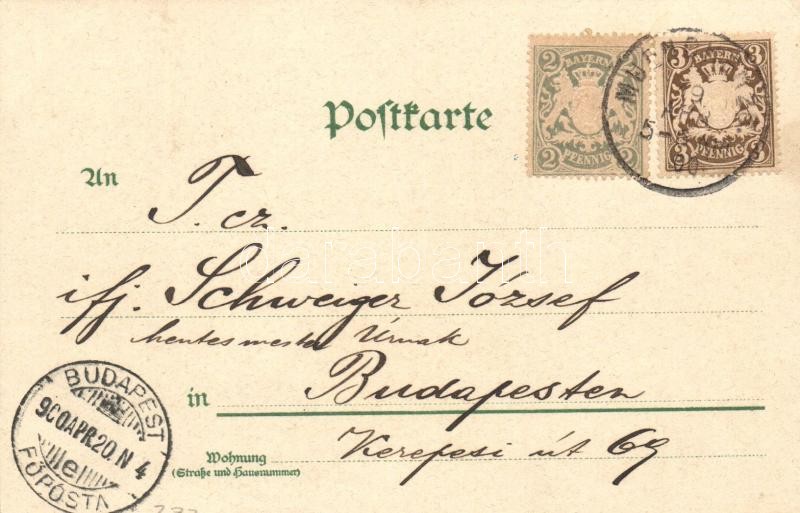 2 BAYERN 2
2 PFENNIG 2
3 BAYERN 3
3 PFENNIG 3
Poſtkarte
An
T. cz.
ifj. Schweiger József
hentesmester Úrnak
in Budapesten
Wohnung
(Straße und Hausnummer)
Kerepesi út 69
BUDAPEST
900 APR. 20. N 4
e
FŐPOSTA
darabanth